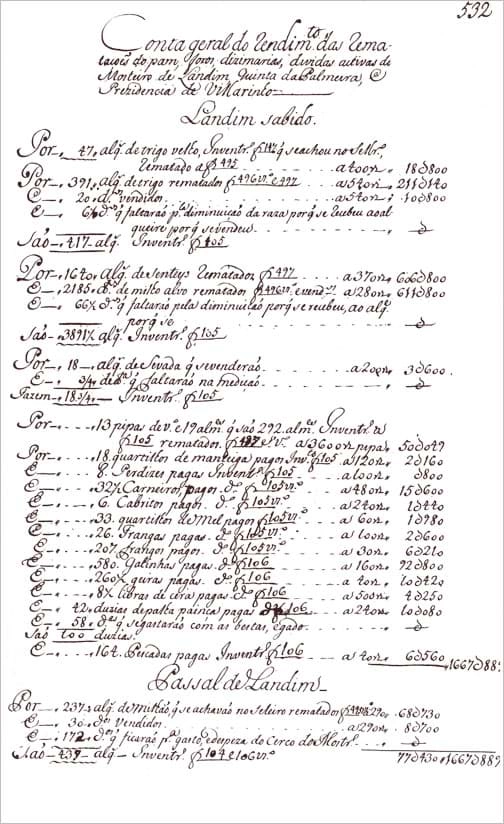 532
Conta geral do Rendim.to das Rema-
taçoẽs do pam, foros, dizimarias, dividas activas do
Mosteiro de Landim, Quinta da Palmeira, e
Prezidencia de Villarinho
Landim sabido.
Por 47. alq.s de trigo velho, Inventr.o f 141 q̃ se achou no Sellr.o,
Rematado a f 495 a 400 rs. 18$800
Por 391. alq.s de trigo rematados f 496 v.o e 497 a 540 rs. 211$140
E 20. d.os vendidos a 540 rs. 10$800
E 6 d.os q̃ faltaraõ p.la diminuiçaõ da raza porq̃ se recebeu ao al
queire porq̃ se vendeu. $
Saõ 417 alq.s Inventr.o f 105
Por 1640. alq.s de Senteyo Rematados f 497 a 370 rs. 606$800
E 2185. d.os de milho alvo rematados f 496 v.o e vend.os a 280 rs. 611$800
E 66½ d.os q̃ faltaraõ pela diminuiçaõ porq̃ se recebeu, ao alq.e
porq̃ se $
Saõ 3891½ alq.s Inventr.o f 105
Por 18 alq.s de Sevada q̃ se venderaõ a 200 rs. 3$600
E 3/4 de q̃ faltaraõ na mediçaõ $
Fazem 18 3/4 Inventr.o f 105
Por 13 pipas de v.o e 19 alm.s q̃ saõ 292. alm.s Inventr.o
f 105 rematados. a 3600 rs pipa 50$049
Por 18. quartilhos de manteiga pagos Inv.o f 105 a 120 rs. 2$160
E 8. Perdizes pagas Inventr.o f 105 a 100 rs. $800
E 32½ Carneiros pagos d.o f 105 v.o a 480 rs. 15$600
E 6. Cabritos pagos d.o f 105 v.o a 240 rs. 1$440
E 33. quartilhos de Mel pagos f 105 v.o a 60 rs. 1$980
E 26. Frangas pagas d.o f 105 v.o a 100 rs. 2$600
E 207. Frangos pagos d.o f 105 v.o a 30 rs. 6$210
E 580. Galinhas pagas d.o f 106 a 160 rs. 92$800
E 260½ pagas. d.o f 106 a 40 rs. 10$420
E 8½ libras de cera pagas d.o f 106 a 500 rs. 4$250
E 42. duzias de palha painça pagas f 106 a 240 rs. 10$080
E 58. d.as q̃ se gastaraõ com as bestas, e gado $
Saõ 100 duzias.
E 164. Peicadas pagas Inventr.o f 106 a 40 rs. 6$560 1667$889
Passal de Landim
Por 237. alq.s de Milhaõ, q̃ se achavaõ no Seleiro rematados a 290 68$730
E 30 d.os Vendidos a 290 rs. 8$700
E 172. d.os q̃ ficaraõ p.a gasto, e despeza do Cerco do Mostr.o $
Saõ 439 alq.s Inventr.o f 104 e 106 v.o 77$430 1667$889